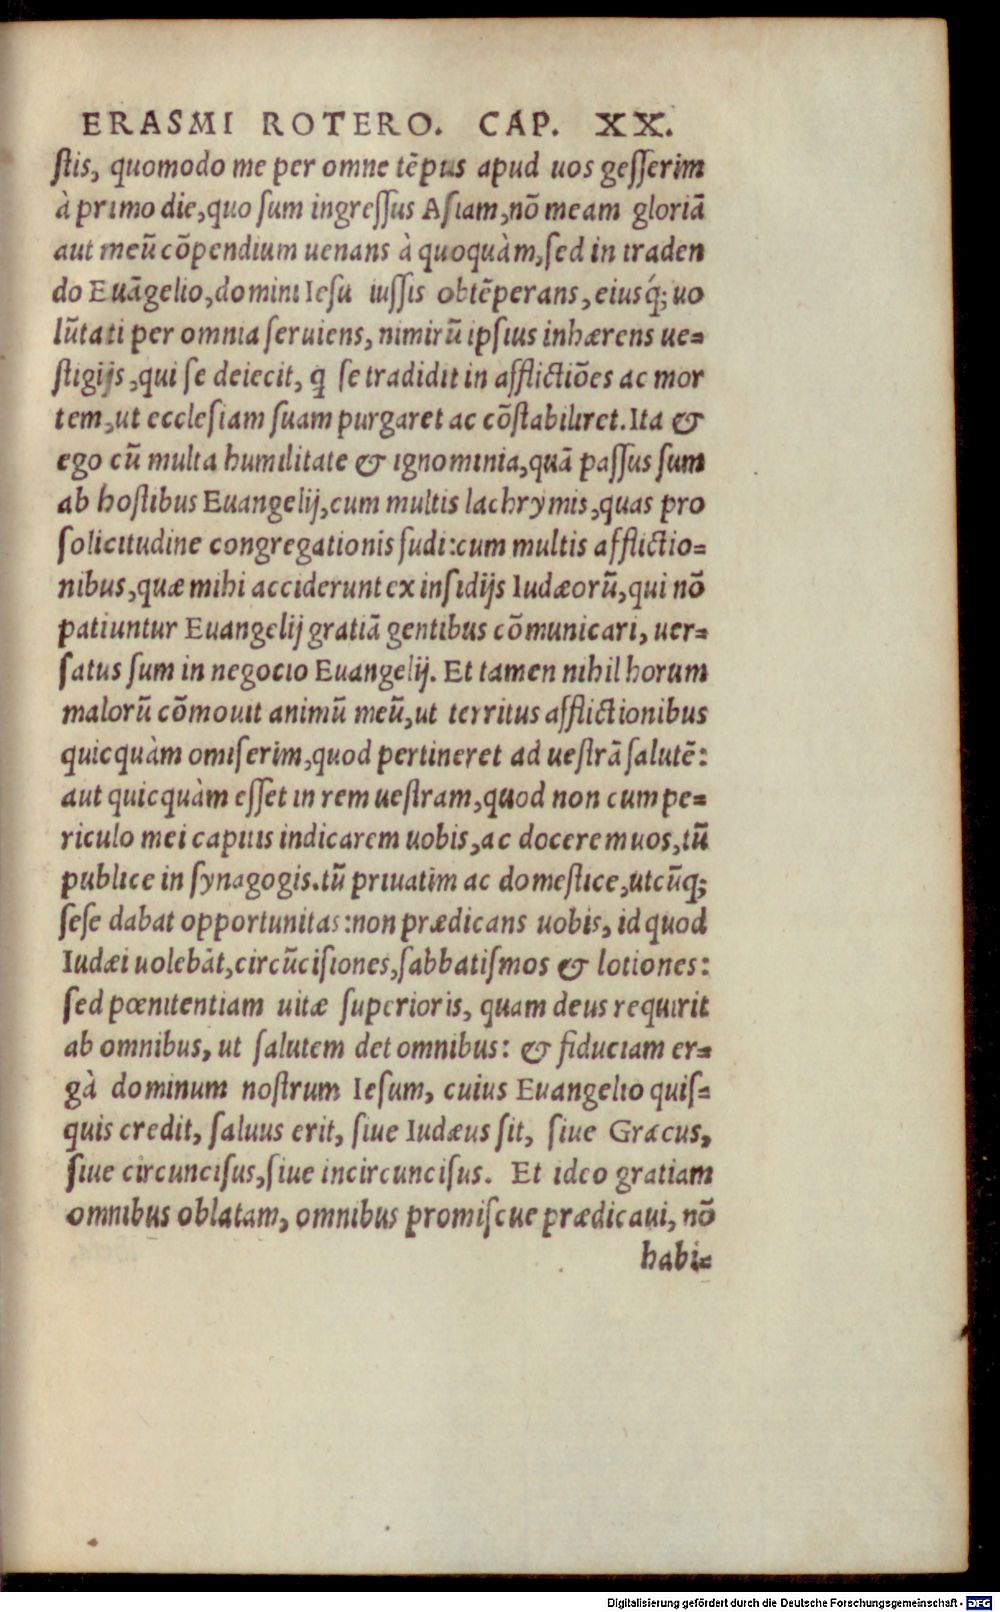 ERASMI ROTERO. CAP. XX.
ſtis, quomodo me per omne tẽpus apud uos geſſerim
à primo die, quo ſum ingreſſus Aſiam, nõ meam gloriã
aut meũ cõpendium uenans à quoquàm, ſed in traden
do Euãgelio, domini Ieſu iuſſis obtẽperans, eiusq́; uo
lũtati per omnia ſeruiens, nimirũ ipſius inhærens ue=
ſtigijs, qui ſe deiecit, q̃ ſe tradidit in afflictiões ac mor
tem, ut eccleſiam ſuam purgaret ac cõſtabiliret. Ita &
ego cũ multa humilitate & ignominia, quã paſſus ſum
ab hoſtibus Euangelij, cum multis lachrymis, quas pro
ſolicitudine congregationis fudi: cum multis afflictio=
nibus, quæ mihi acciderunt ex inſidijs Iudæorũ, qui nõ
patiuntur Euangelij gratiã gentibus cõmunicari, uer=
ſatus ſum in negocio Euangelij. Et tamen nihil horum
malorũ cõmouit animũ meũ, ut territus afflictionibus
quicquàm omiſerim, quod pertineret ad ueſtrã ſalutẽ:
aut quicquàm eſſet in rem ueſtram, quod non cum pe=
riculo mei capitis indicarem uobis, ac docerem uos, tũ
publice in ſynagogis. tũ priuatim ac domeſtice, utcũq;
ſeſe dabat opportunitas: non prædicans uobis, id quod
Iudæi uolebãt, circũciſiones, ſabbatiſmos & lotiones:
ſed pœnitentiam uitæ ſuperioris, quam deus requirit
ab omnibus, ut ſalutem det omnibus: & fiduciam er=
gà dominum noſtrum Ieſum, cuius Euangelio quiſ=
quis credit, ſaluus erit, ſiue Iudæus ſit, ſiue Græcus,
ſiue circunciſus, ſiue incircunciſus. Et ideo gratiam
omnibus oblatam, omnibus promiſcue prædicaui, nõ
habi=
Digitalisierung gefördert durch die Deutsche Forschungsgemeinschaft - DFG